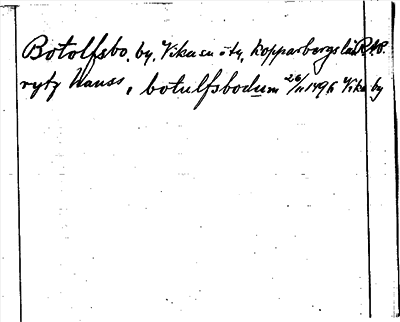 Botolfsbo by, Vika sn o ty, Kopparbergs län RAp.
rytz Hanss, botulfsbodum 26/11 1496 Vika by